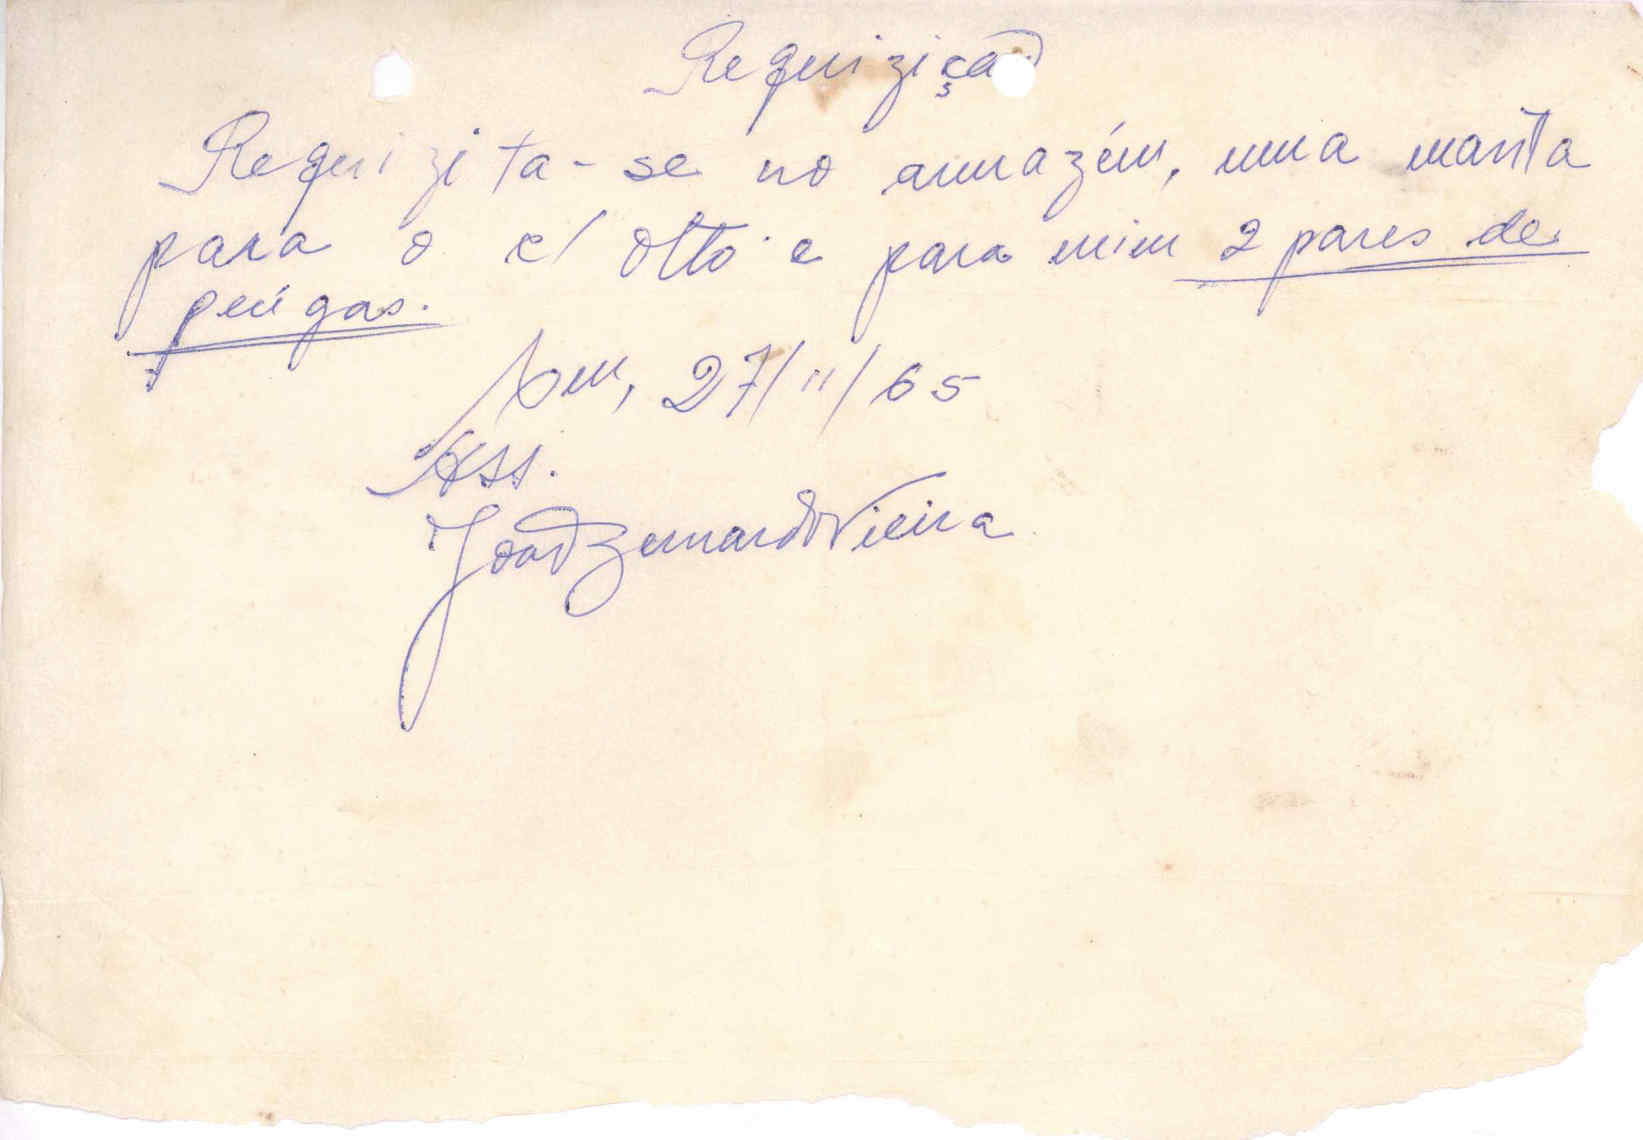 Requizição
Requizita-se no armazém, uma manta
para o c/ Otto e para mim 2 pares de
peúgas.
Em, 27/11/65
Ass.
João Bernardo Vieira